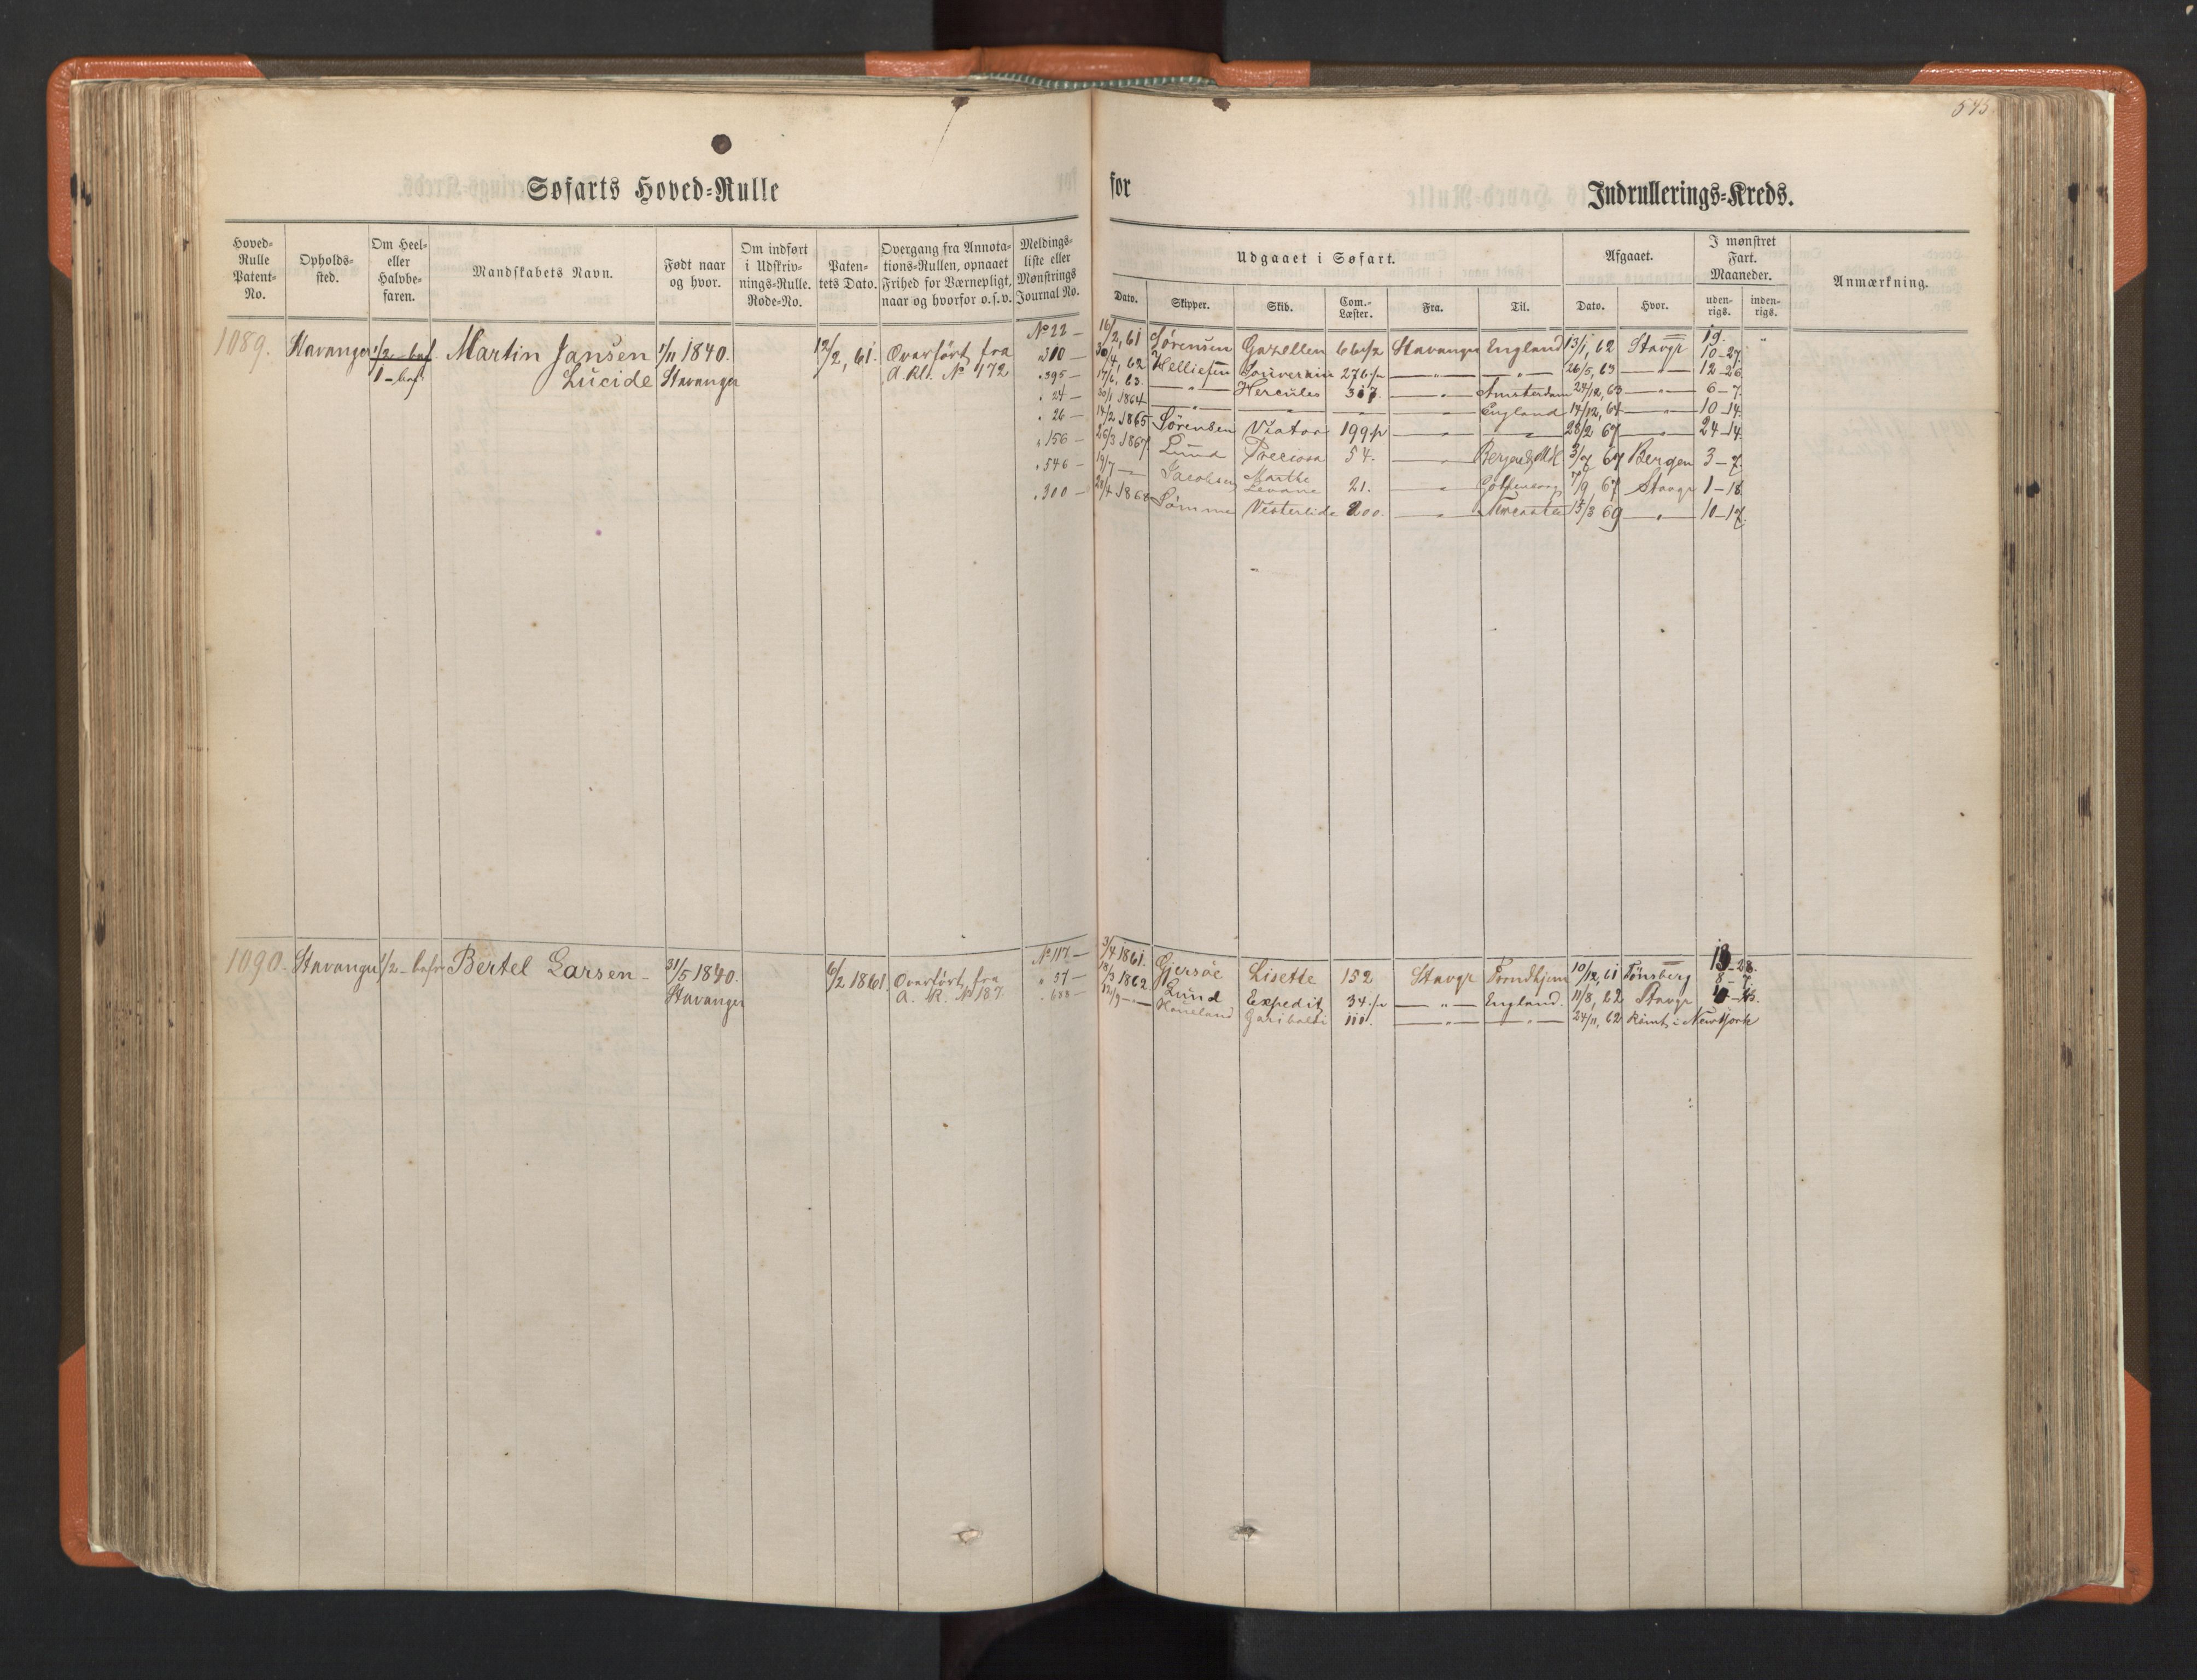 545
Søfarts Hoved=Rulle
for
Indrullerings=Kreds.
Hoved=Rulle Patent=No.
Opholds=sted.
Om Heel= eller Halvbe=faren.
Mandskabets Navn.
Født naar og hvor.
Om indført i Udskriv=nings=Rulle. Rode=No.
Paten=tets Dato.
Overgang fra Annota=tions=Rullen, opnaaet Frihed for Værnepligt, naar og hvorfor o.s.v.
Meldings=liste eller Mønstrings Journal No.
Udgaaet i Søfart.
Dato. Skipper. Skib. Com.=Læster. Fra. Til.
Afgaaet.
Dato. Hvor.
I mønstret Fart. Maaneder.
uden=rigs. inden=rigs.
Anmærkning.
1089. Stavanger 1/2 - bef. Martin Jansen 1/11 1840. 12/2, 61. Overført fra
1 - bef. Lucide Stavanger A. Rl. No 172
No 22 — 16/2, 61 Sørensen Gazellen 66 1/2 Stavanger England 13/1, 62 Stavgr 10-27. "
" 310 — 30/4, 62 Helliesen Souverain 276 1/2 — " — — " — 26/5, 63 — " — 12-26
" 395 — 17/6, 63. — " — Hercules 317. — " — Amsterdam 24/12, 63 — " — 6-7.
" 24 — 30/1 1864 — " — — " — — " — — " — England 14/12, 64 — " — 10-14.
" 26 — 14/2 1865 Sørensen Viator 199 1/2 — " — — " — 28/2 67 — " — 24-14
" 156 — 26/3 1867. Lund Preciosa 54. — " — 3/7 67 Bergen 3-7.
" 546 — 19/7 — Jacobsen Marthe Levane 21. — " — 7/9, 67 Stavgr 1-18
" 300 — 28/4 1868 Sømme Vesterlide 200. — " — 15/3 69 — " — 10-17.
1090. Stavanger 1/2 - befr. Bertel Larsen - 31/5 1840. 6/2 1861. Overført fra
Stavanger A. R. No 187.
No 117 — 3/4 1861. Gjersøe Lisette 152 Stavgr Trondhjem 10/12, 61 Tönsberg
" 57 — 18/3 1862. Lund Expedit 34 1/2 — " — England. 11/8, 62 Stavgr
" 688 — 12/9 — " — Haueland Garibaldi 111. — " — — " — 24/11, 62 Römt i New York